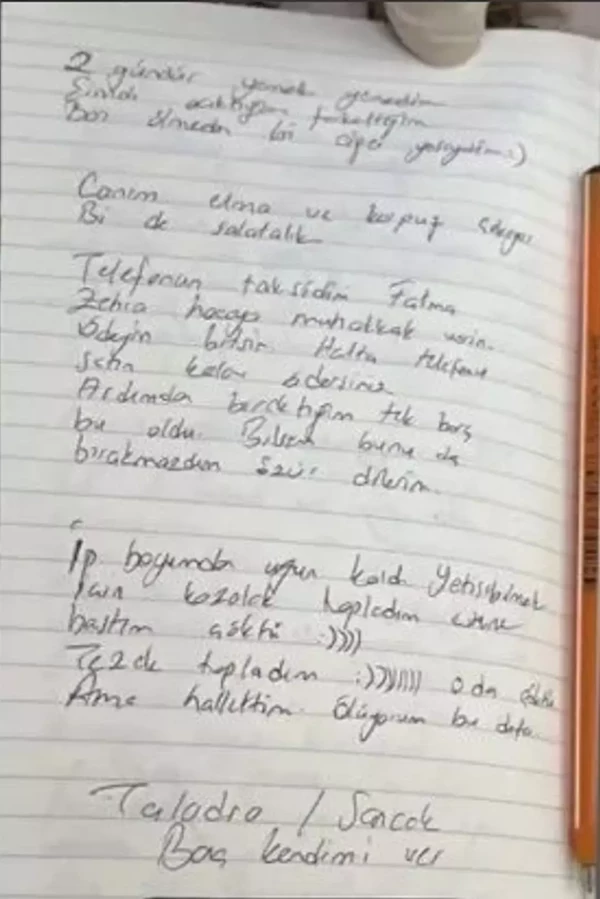 2 gündür yemek yemedim
Şimdi acıktığım
Ben ölmeden bi yapıyım :)
Canım elma ve karpuz
Bi de salatalık
Telefonun taksidini Fatma
Zehra hocaya muhakkak verin.
Ödeyin bitsin. Hatta telefonu
satın kalanı ödersiniz
Ardımda bıraktığım tek borç
bu oldu. Bilsem bunu da
bırakmazdım özür dilerim.
İp boyumdan uzun kaldı Yetişebilmek
için kozalak topladım üstüne
bastım çöktü :))))
Tezek topladım :)))))))) o da çöktü
Ama hallettim. Ölüyorum bu defa.
/ Sancak
Baş kendimi ver